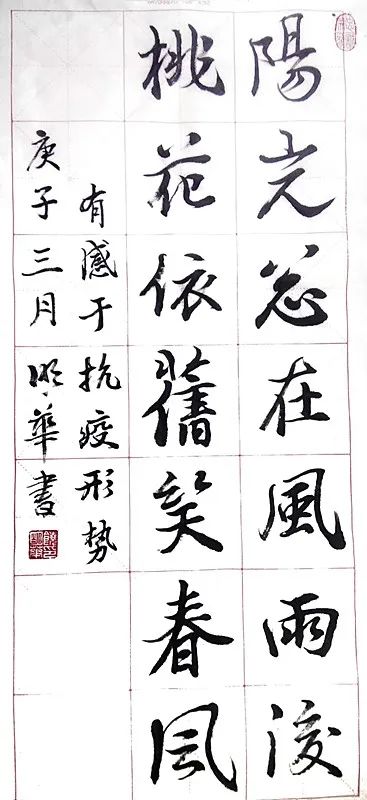 陽光总在風雨後
桃花依舊笑春风
有感于抗疫形势
庚子三月明華書